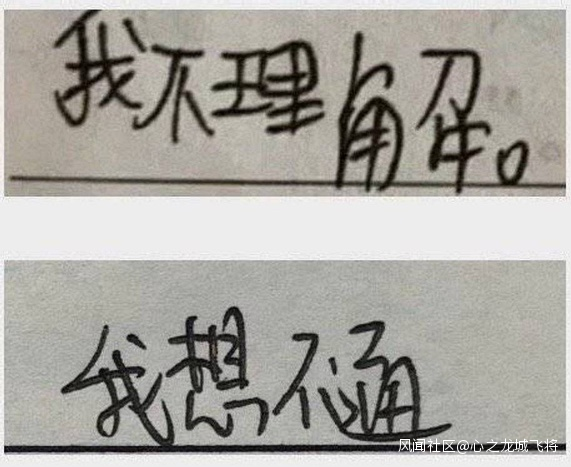 我不理解。
我想不通
风闻社区@心之龙城飞将